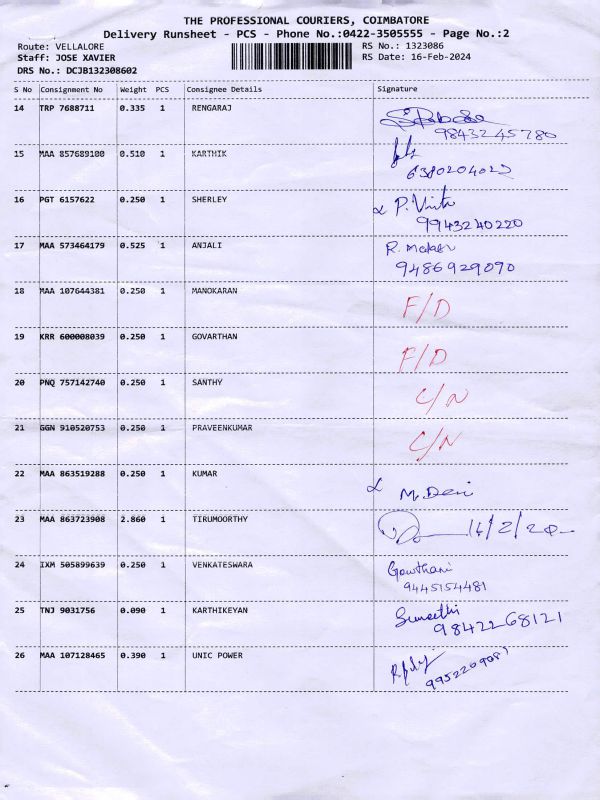 THE PROFESSIONAL COURIERS, COIMBATORE
Delivery Runsheet - PCS - Phone No.:0422-3505555 - Page No.:2
Route: VELLALORE RS No.: 1323086
Staff: JOSE XAVIER RS Date: 16-Feb-2024
DRS No.: DCJB132308602
S No Consignment No Weight PCS Consignee Details Signature
14 TRP 7688711 0.335 1 RENGARAJ
9843245780
15 MAA 857689100 0.510 1 KARTHIK
6380204022
16 PGT 6157622 0.250 1 SHERLEY P.
9943240220
17 MAA 573464179 0.525 1 ANJALI R.
9486929090
18 MAA 107644381 0.250 1 MANOKARAN F/D
19 KRR 600008039 0.250 1 GOVARTHAN F/D
20 PNQ 757142740 0.250 1 SANTHY C/N
21 GGN 910520753 0.250 1 PRAVEENKUMAR C/N
22 MAA 863519288 0.250 1 KUMAR M. Devi
23 MAA 863723908 2.860 1 TIRUMOORTHY
24 IXM 505899639 0.250 1 VENKATESWARA Gowthani
9445154481
25 TNJ 9031756 0.090 1 KARTHIKEYAN Sumathi
9842268121
26 MAA 107128465 0.390 1 UNIC POWER
9952209081